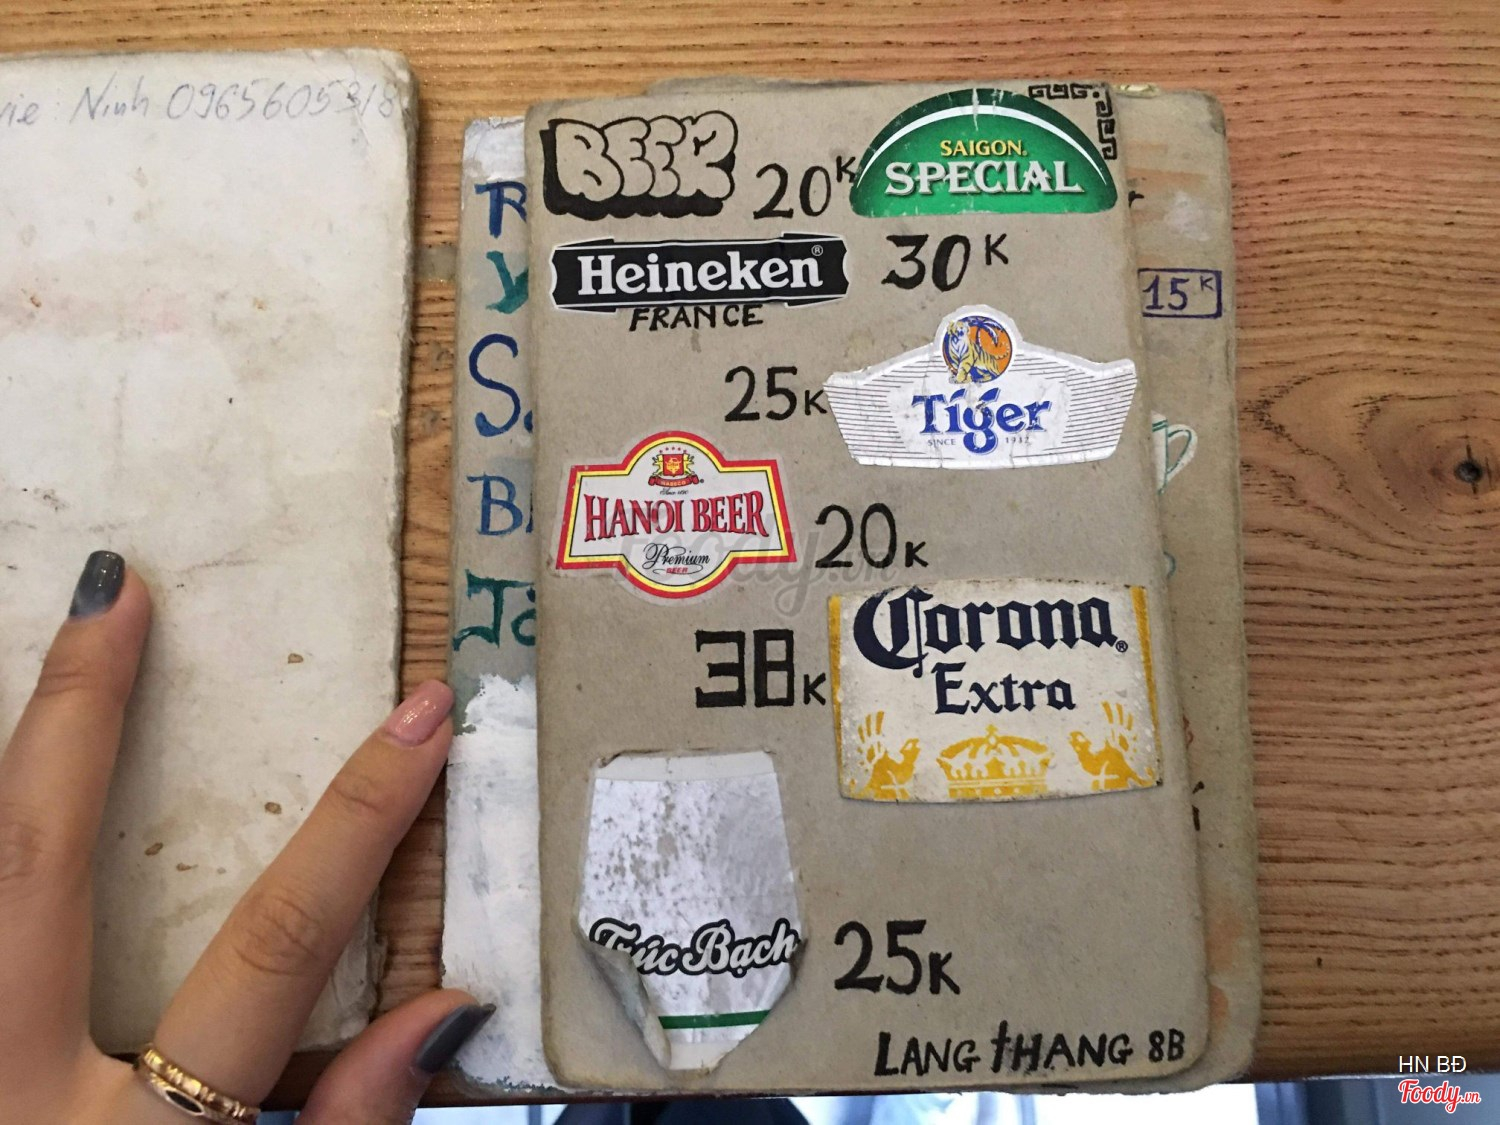 Ninh 0965605318
BEER
20K
SAIGON.
SPECIAL
Heineken®
FRANCE
30K
15K
25K
Tiger
SINCE 1932
HANOI BEER
Premium
BEER
20K
38K
Corona®
Extra
Trúc Bạch
25K
LANG THANG 8B
HN BĐ
Foody.vn